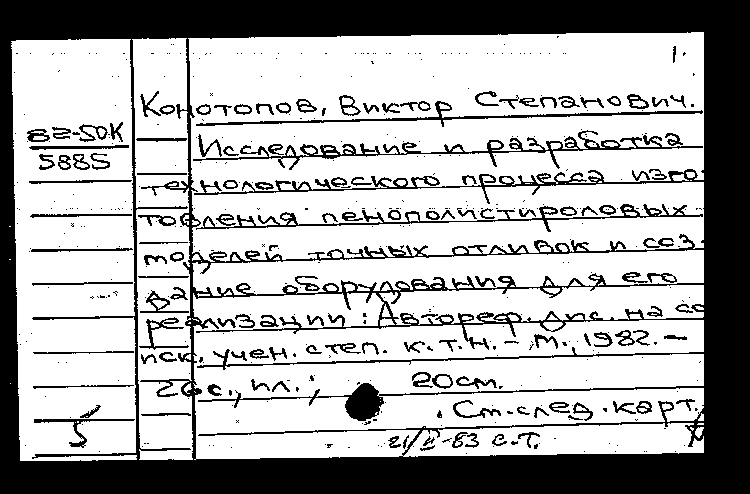 1.
Конотопов, Виктор Степанович.
82-50К
5885
Исследование и разработка
технологического процесса изго-
товления пенополистироловых
моделей точных отливок и соз-
дание оборудования для его
реализации: Автореф. дис. на со
иск. учен. степ. к.т.н. – М., 1982. –
26 с., ил.; 20 см.
См. след. карт.
5
21/II-83 С.Т.